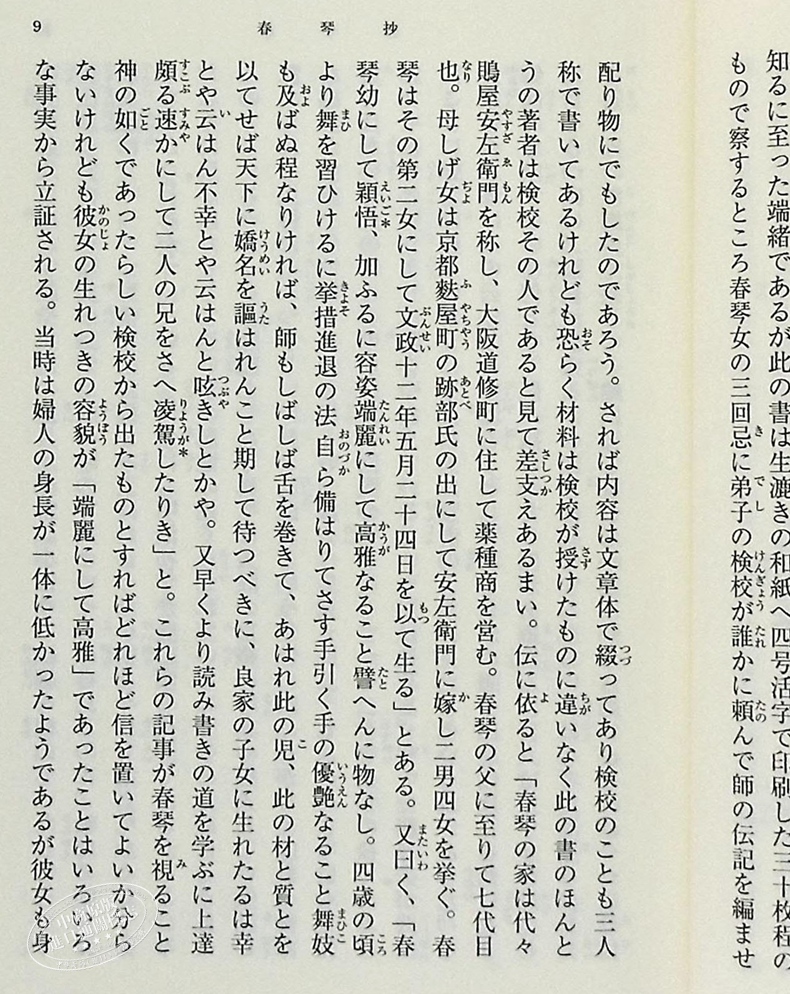 知るに至った端緒であるが此の書は生漉きの和紙へ四号活字で印刷した三十枚程の
もので察するところ春琴女の三回忌に弟子の検校が誰かに頼んで師の伝記を編ませ
9
春琴抄
配り物にでもしたのであろう。されば内容は文章体で綴ってあり検校のことも三人
称で書いてあるけれども恐らく材料は検校が授けたものに違いなく此の書のほんと
うの著者は検校その人であると見て差支えあるまい。伝に依ると「春琴の家は代々
鵙屋安左衛門を称し、大阪道修町に住して薬種商を営む。春琴の父に至りて七代目
也。母しげ女は京都麩屋町の跡部氏の出にして安左衛門に嫁し二男四女を挙ぐ。春
琴はその第二女にして文政十二年五月二十四日を以て生る」とある。又曰く、「春
琴幼にして穎悟、加ふるに容姿端麗にして高雅なること譬へんに物なし。四歳の頃
より舞を習ひけるに挙措進退の法自ら備はりてさす手引く手の優艶なること舞妓
も及ばぬ程なりければ、師もしばしば舌を巻きて、あはれ此の児、此の材と質とを
以てせば天下に嬌名を謳はれんこと期して待つべきに、良家の子女に生れたるは幸
とや云はん不幸とや云はんと呟きしとかや。又早くより読み書きの道を学ぶに上達
頗る速かにして二人の兄をさへ凌駕したりき」と。これらの記事が春琴を視ること
神の如くであったらしい検校から出たものとすればどれほど信を置いてよいか分ら
ないけれども彼女の生れつきの容貌が「端麗にして高雅」であったことはいろいろ
な事実から立証される。当時は婦人の身長が一体に低かったようであるが彼女も身